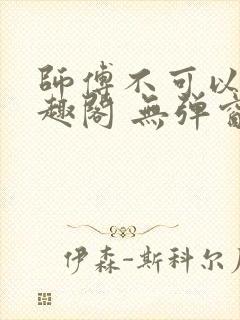 師傅不可以
趣閣 無弹
伊森-斯科尔